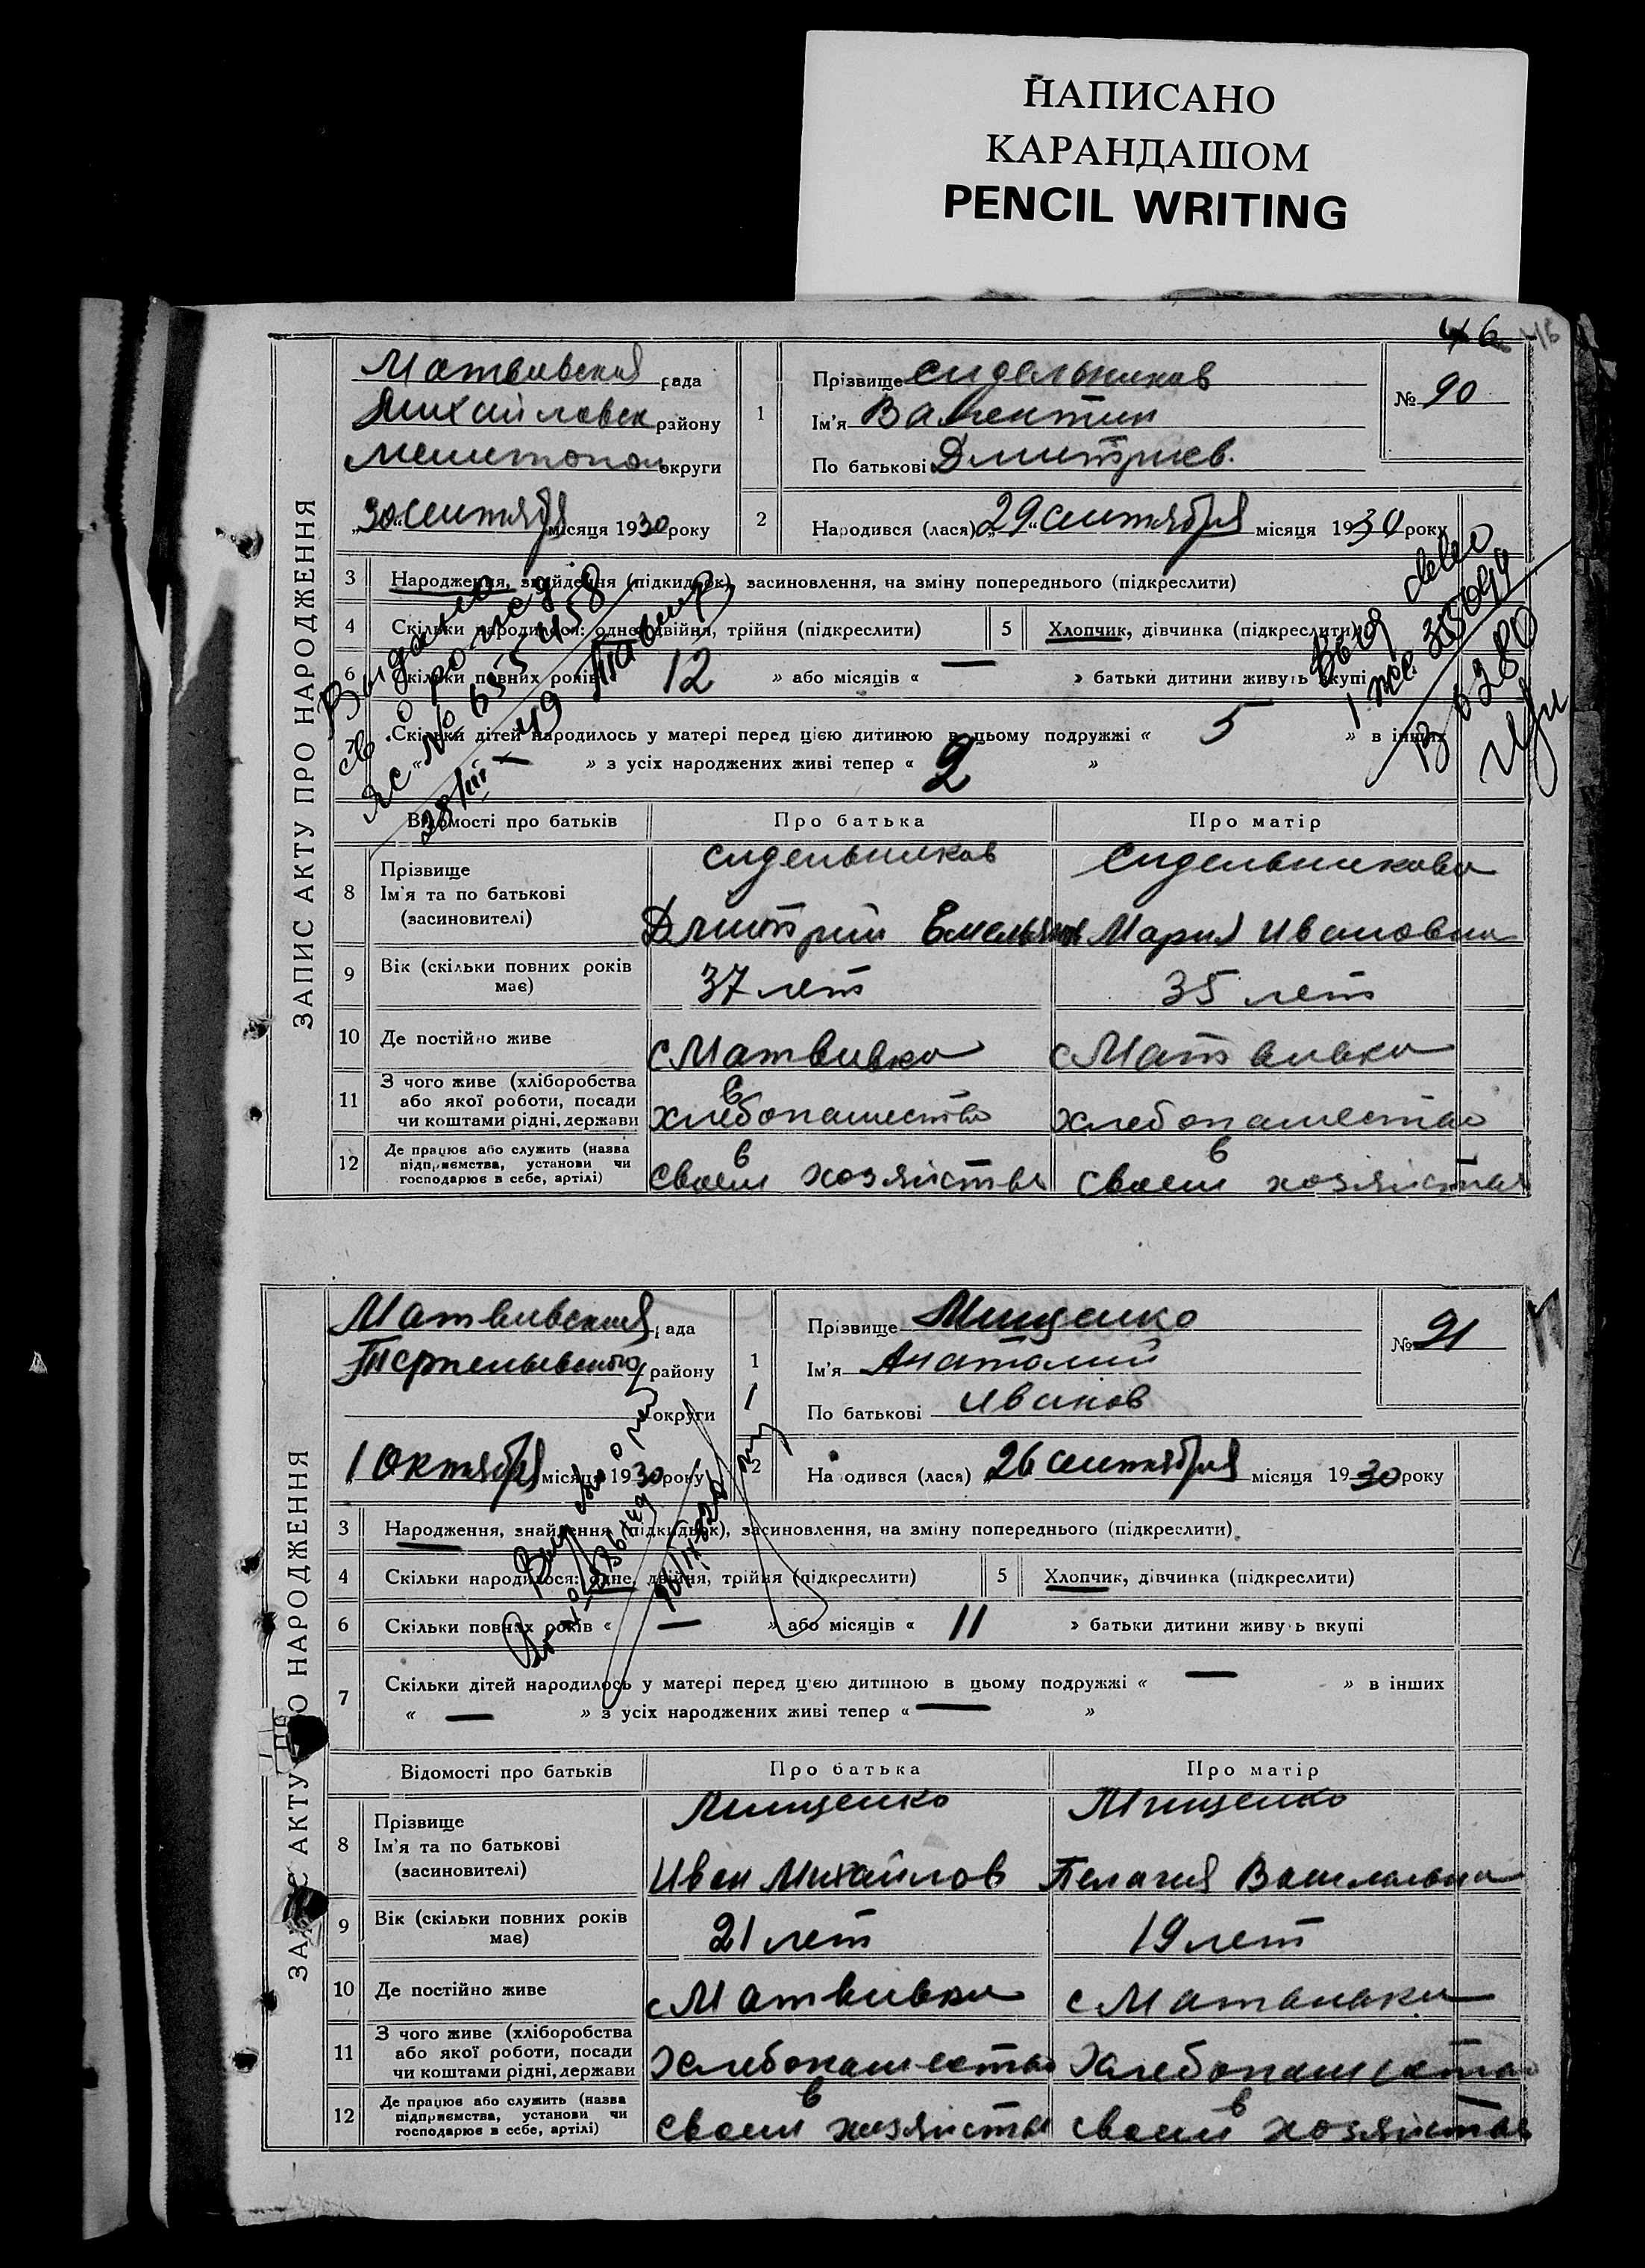 НАПИСАНО
КАРАНДАШОМ
PENCIL WRITING
46 46
ЗАПИС АКТУ ПРО НАРОДЖЕННЯ
Матвивская рада
Михайловск району
Мелитопол округи
„30“ сентября місяця 1930 року
1
Прізвище Сидельников
Ім'я Валентин
По батькові Дмитриев.
№ 90
2
Народився (лася) „29“ сентября місяця 1930 року
3 Народження, знайдення (підкидьок), засиновлення, на зміну попереднього (підкреслити)
4 Скільки народилося: одне, двійня, трійня (підкреслити) 5 Хлопчик, дівчинка (підкреслити)
6 Скільки повних років 12 » або місяців « — » батьки дитини живуть вкупі
Скільки дітей народилось у матері перед цією дитиною в цьому подружжі « 5 » в інших
» з усіх народжених живі тепер « 2 »
Выдано
св о рожд
ЯС № 655458
28/III
Выд свво
В 6280
Відомості про батьків Про батька Про матір
8 Прізвище
Ім'я та по батькові
(засиновителі)
Сидельников Сидельникова
Дмитрий Емельянов Мария Ивановна
9 Вік (скільки повних років
має)
37 лет 35 лет
10 Де постійно живе с Матвивка с Матвивка
11 З чого живе (хліборобства
або якої роботи, посади
чи коштами рідні, держави
хлебопашество хлебопашество
12 Де працює або служить (назва
підприємства, установи чи
господарює в себе, артілі)
в своем хозяйстве в своем хозяйстве
ЗАПИС АКТУ ПРО НАРОДЖЕННЯ
Матвивская рада
Терпеньевского району
округи
„1 Октября місяця 1930 року
1
Прізвище Мищенко
Ім'я Анатолий
По батькові Иванов
№ 91
2
Народився (лася) „26 сентября місяця 1930 року
3 Народження, знайдення (підкидьок), засиновлення, на зміну попереднього (підкреслити)
4 Скільки народилося: одне, двійня, трійня (підкреслити) 5 Хлопчик, дівчинка (підкреслити)
6 Скільки повних років « — » або місяців « 11 » батьки дитини живуть вкупі
7 Скільки дітей народилось у матері перед цією дитиною в цьому подружжі « — » в інших
« — » з усіх народжених живі тепер « — »
Відомості про батьків Про батька Про матір
8 Прізвище
Ім'я та по батькові
(засиновителі)
Мищенко Мищенко
Иван Михайлов Пелагия Васильевна
9 Вік (скільки повних років
має)
21 лет 19 лет
10 Де постійно живе с Матвивка с Матвивка
11 З чого живе (хліборобства
або якої роботи, посади
чи коштами рідні, держави
Хлебопашество Хлебопашество
12 Де працює або служить (назва
підприємства, установи чи
господарює в себе, артілі)
в своем хозяйстве в своем хозяйстве